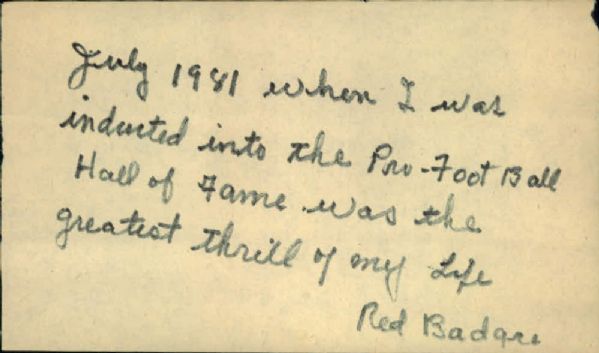 July 1981 when I was
inducted into the Pro-Foot Ball
Hall of Fame was the
greatest thrill of my Life
Red Badgro